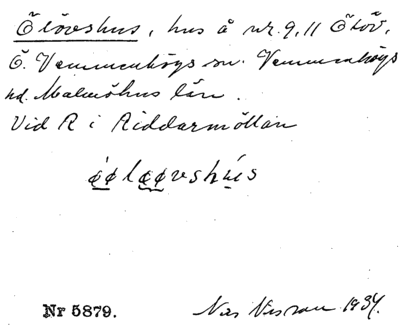 Ölövshus, hus å nr. 9, 11 Ölöv,
Ö. Vemmenhögs sn. Vemmenhögs
hd. Malmöhus län.
Vid R i Riddarmöllan
ǿølø̨øvshús
Nr 5879. Nils Nilsson 1934.